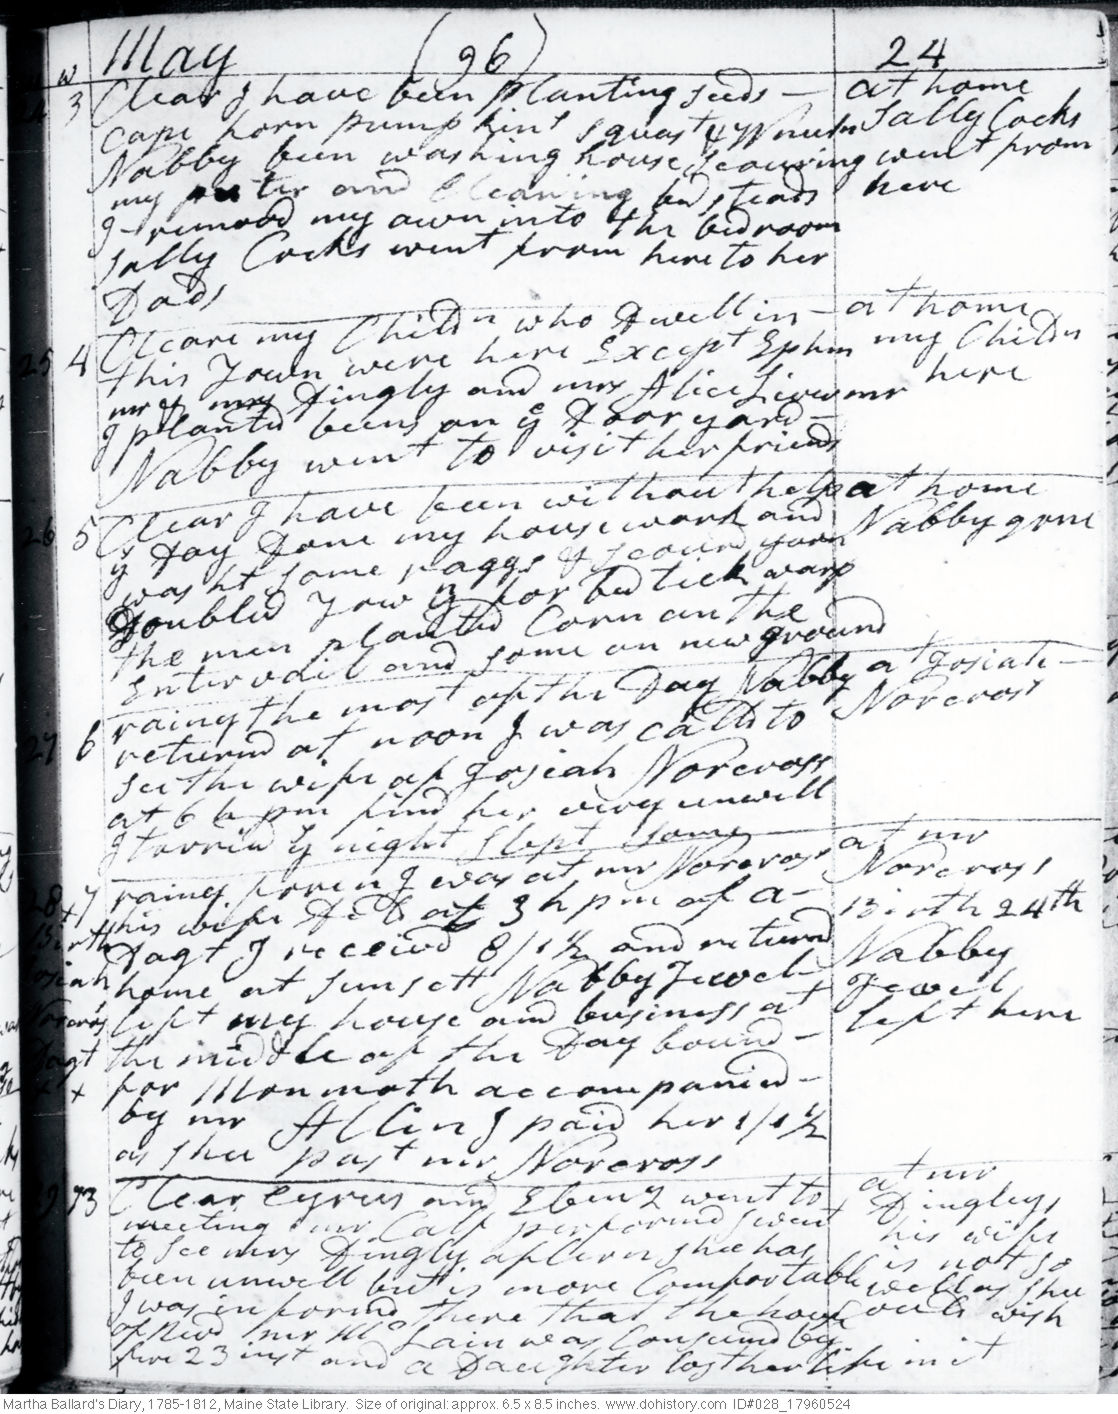 May (96) 24
24 3 Clear I have been planting seeds — at home
Cape horn pumpkins squash & Sally Cocks
Nabby been washing house, scouring went from
my puter and Cleaning bed steads here
I removd my own into the bedroom
Sally Cocks went from here to her
Dads
25 4 Cleare my Childn who Dwell in — at home
this Town were here Except Ephm my Childn
mr & mrs Dingly and mrs Alice here
I plantd beens on ye Door yard —
Nabby went to visit her friends
26 5 Clear I have been without help at home
ye Day Done my house work and Nabby gone
washt some raggs & scound yarn
Doubled Tow yn for bed tick warp
the men plantd Corn on the
Intervail and some on new ground
27 6 rainy the most of the Day Nabby at Josiah —
returnd at noon I was calld to Norcross
see the wife of Josiah Norcross
at 6 h pm find her very unwell
I tarried ye night slept some
28 7 rainy foren I was at mr Norcross at mr
his wife Deld at 3 h pm of a — Norcross
Birth Dagt I receivd 8/1½ and returnd Birth 24th
Josiah home at sunsett Nabby Jewel — Nabby
Norcros left my house and business at Jewel
Dagt the middle of the Day bound — left here
x x for Monmoth accompanied —
by mr Allin I paid her 1/1½
as shee past mr Norcross
29 Clear Cyrus and went to at mr
meeting mr Calf performd I went Dinglys
to see mrs Dingly aftern shee has his wife
been unwell but is more Comfortable is not so
I was informd there that the hous well as shee
of Revd mr was Consumd by could wish
fire 23 inst and a Daughter lost her life in it
Martha Ballard's Diary, 1785-1812, Maine State Library. Size of original: approx. 6.5 x 8.5 inches. www.dohistory.com ID#028_17960524